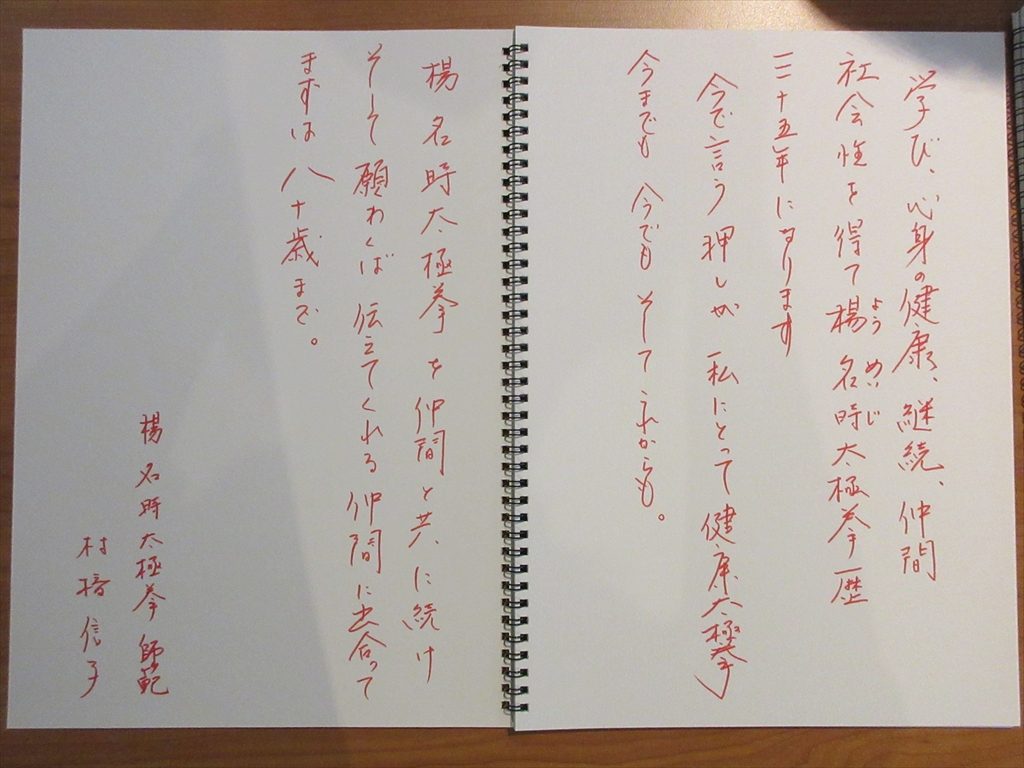 学び、心身の健康、継続、仲間
社会性を得て楊名時太極拳歴
よう めい じ
三十五年になります
今で言う押しが 私にとって健康太極拳
今までも 今でも そしてこれからも。
楊名時太極拳を仲間と共に続け
そして願わくば 伝えてくれる仲間に出合って
まずは八十歳まで。
楊名時太極拳師範
村椿信子